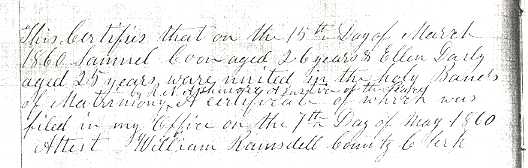 This Certifies that on the 15th Day of March
1860 Samuel Coon aged 26 years & Ellen Darly
aged 25 years were united in the holy Bands
by A. Justice of the Peace
of Matrimony. A certificate of which was
filed in my Office on the 7th Day of May 1860
Attest William Ramsdell County Clerk